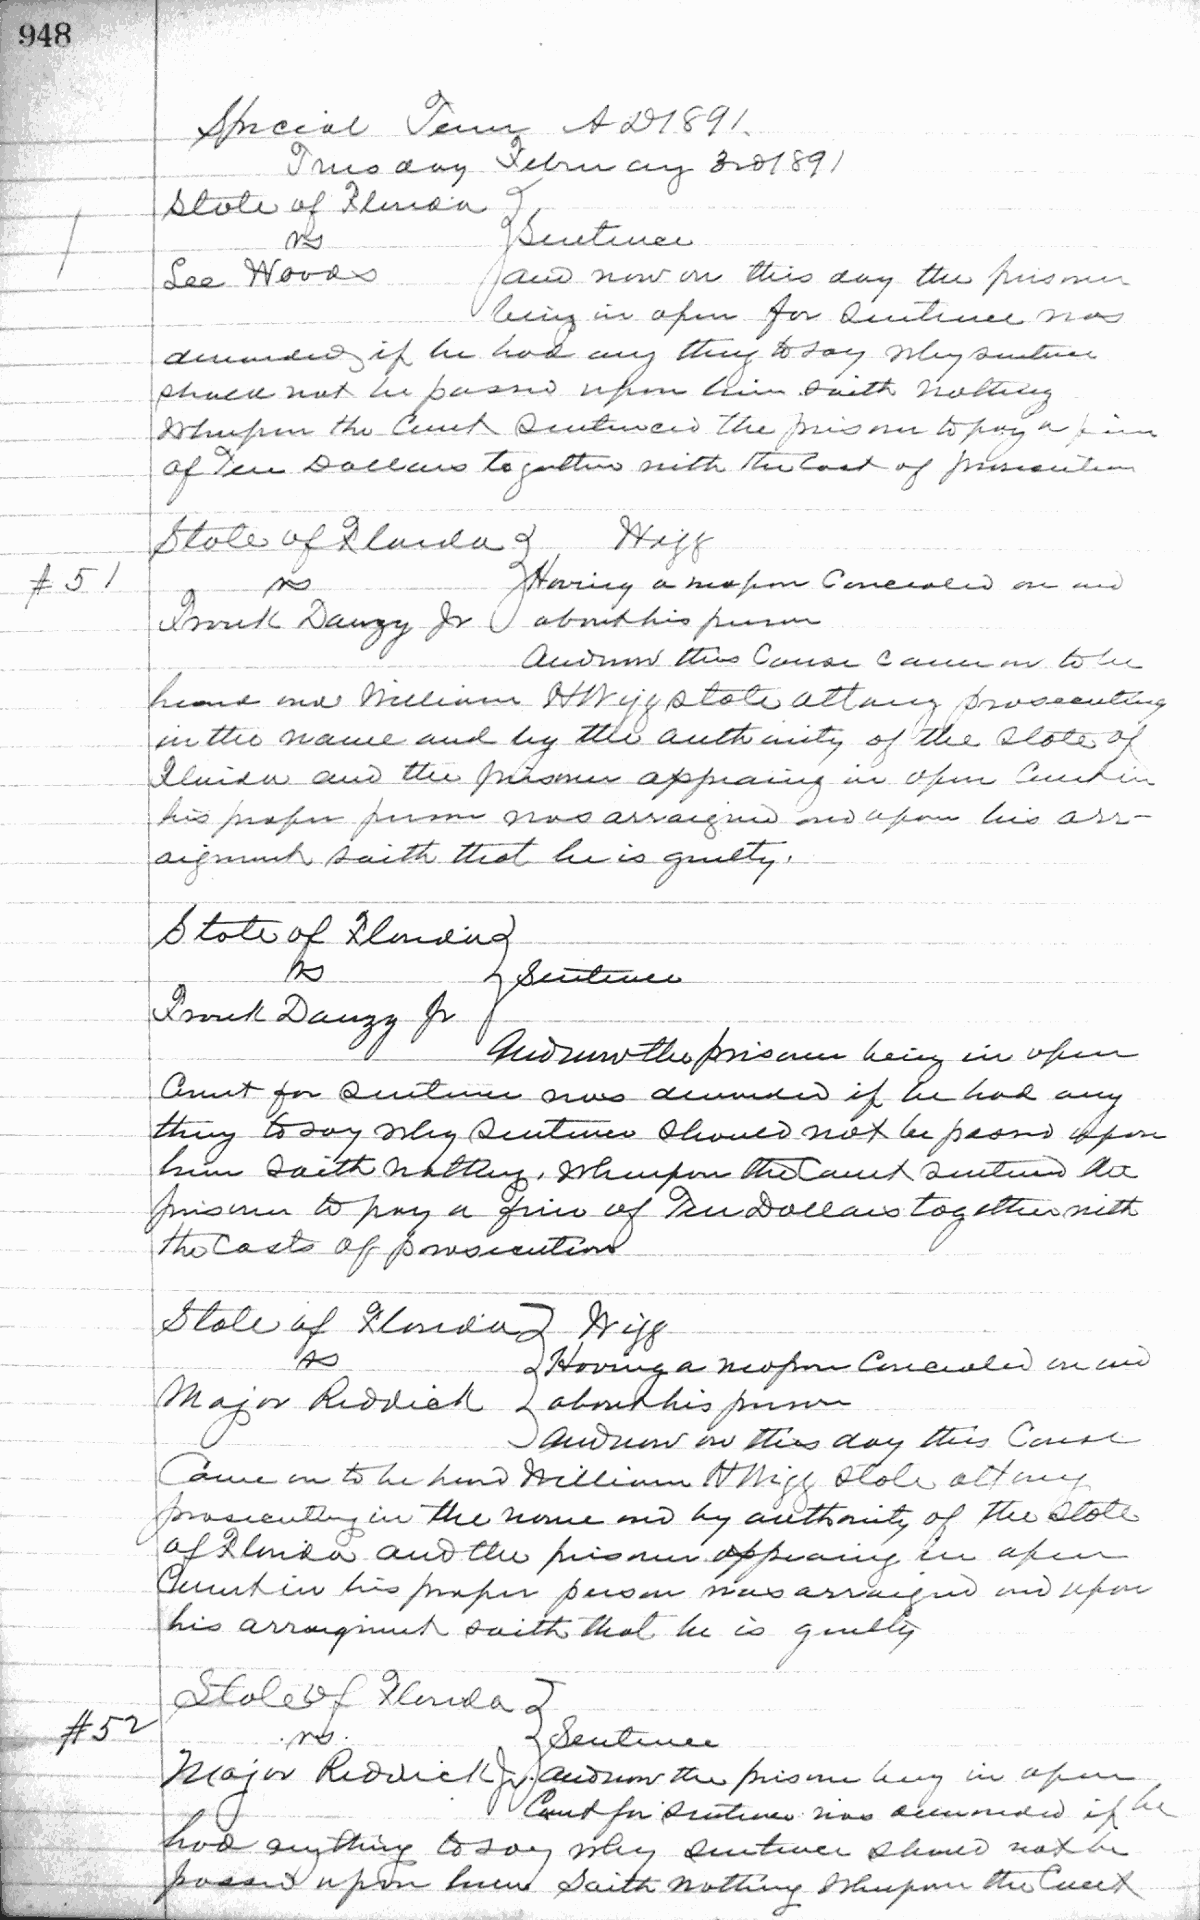 948
Special Term AD 1891.
Tuesday February 3rd 1891
State of Florida
vs Sentence
Lee Woods and now on this day the prisoner
being in open for Sentence was
demanded if he had any thing to say why sentence
should not be passed upon him saith nothing
Whereupon the Court Sentenced the prisoner to pay a fine
of Ten Dollars together with the Cost of prosecution
State of Florida Wigg
#51 vs Having a weapon Concealed on and
Frank Dauzy Jr about his person
And now this Cause came on to be
heard and William H Wigg State attorny prosecuting
in the name and by the authority of the State of
Florida and the prisoner appearing in open Court in
his proper person was arraigned and upon his arr-
aigment saith that he is guilty.
State of Florida
vs Sentence
Frank Dauzy Jr
And now the prisoner being in open
Court for Sentence was demanded if he had any
thing to say why Sentence should not be passed upon
him saith nothing. Whereupon the Court sentenced the
prisoner to pay a fine of Ten Dollars together with
the Costs of prosecution
State of Florida Wigg
vs Having a weapon Concealed on and
Major Reddick about his person
and now on this day this Cause
Came on to be heard William H Wigg State attorny
prosecuting in the name and by authority of the State
of Florida and the prisoner appearing in open
Court in his proper person was arraigned and upon
his arraigment saith that he is guilty
State of Florida
#52 vs. Sentence
Major Reddick Jr. and now the prisoner being in open
Court for Sentence was demanded if he
had anything to say why sentence should not be
passed upon him Saith nothing Whereupon the Court